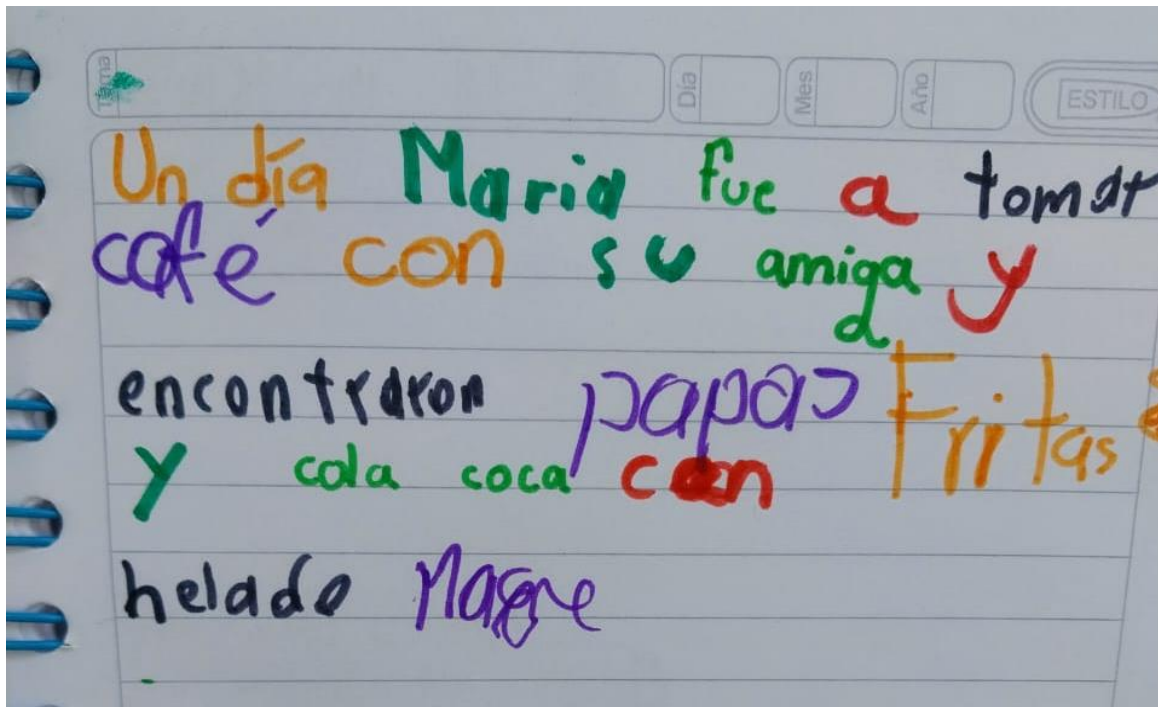 Tema Día Mes Año ESTILO
Un día Maria fue a tomar
café con su amiga y
a
encontraron papas Fritas
y cola coca con
helado